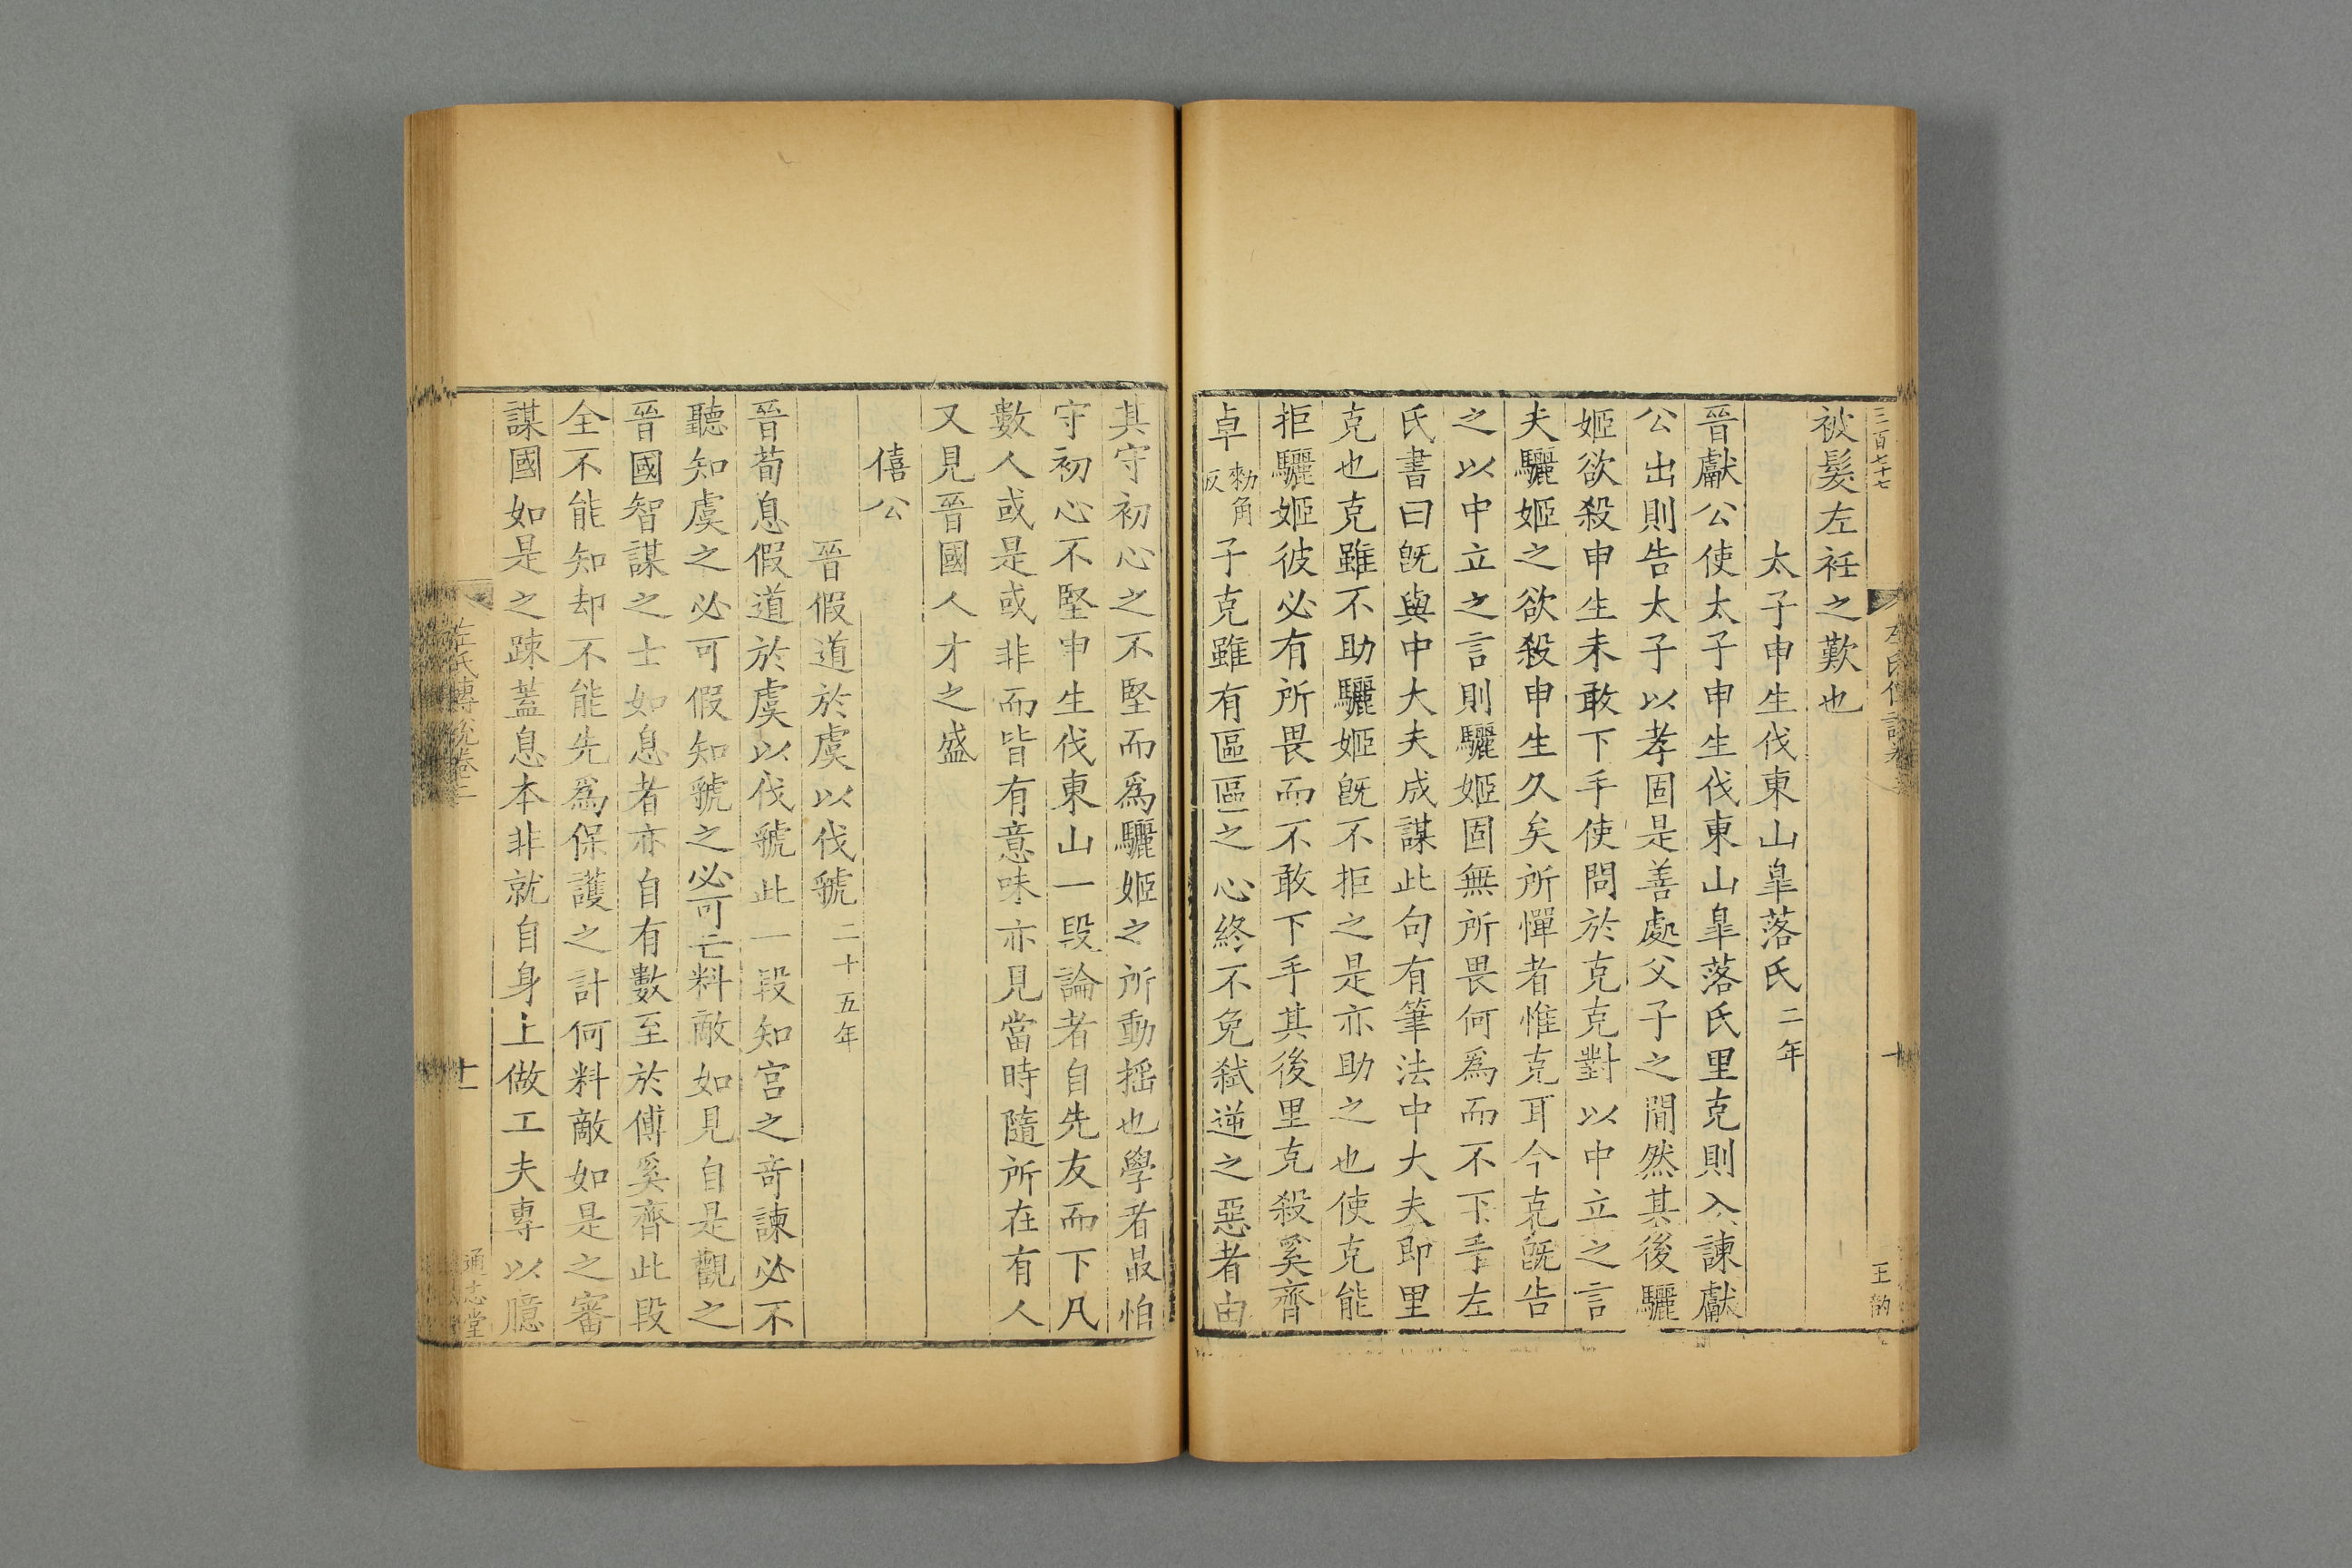 三百七十七
王
被髮左衽之歎也
太子申生伐東山臯落氏二年
晉獻公使太子申生伐東山臯落氏里克則入諫獻
公出則告太子以孝固是善處父子之間然其後驪
姬欲殺申生未敢下手使問於克克對以中立之言
夫驪姬之欲殺申生久矣所憚者惟克耳今克旣告
之以中立之言則驪姬固無所畏何爲而不下手左
氏書曰旣與中大夫成謀此句有筆法中大夫即里
克也克雖不助驪姬旣不拒之是亦助之也使克能
拒驪姬彼必有所畏而不敢下手其後里克殺奚齊
卓勑角反子克雖有區區之心終不免弑逆之惡者由
其守初心之不堅而爲驪姬之所動揺也學者最怕
守初心不堅申生伐東山一段論者自先友而下凡
數人或是或非而皆有意味亦見當時隨所在有人
又見晉國人才之盛
僖公
晉假道於虞以伐虢二十五年
晉荀息假道於虞以伐虢此一段知宮之竒諫必不
聽知虞之必可假知虢之必可亡料敵如見自是觀之
晉國智謀之士如息者亦自有數至於傅奚齊此段
全不能知却不能先爲保護之計何料敵如是之審
謀國如是之踈蓋息本非就自身上做工夫專以臆
左氏傳說卷二
十一
通志堂